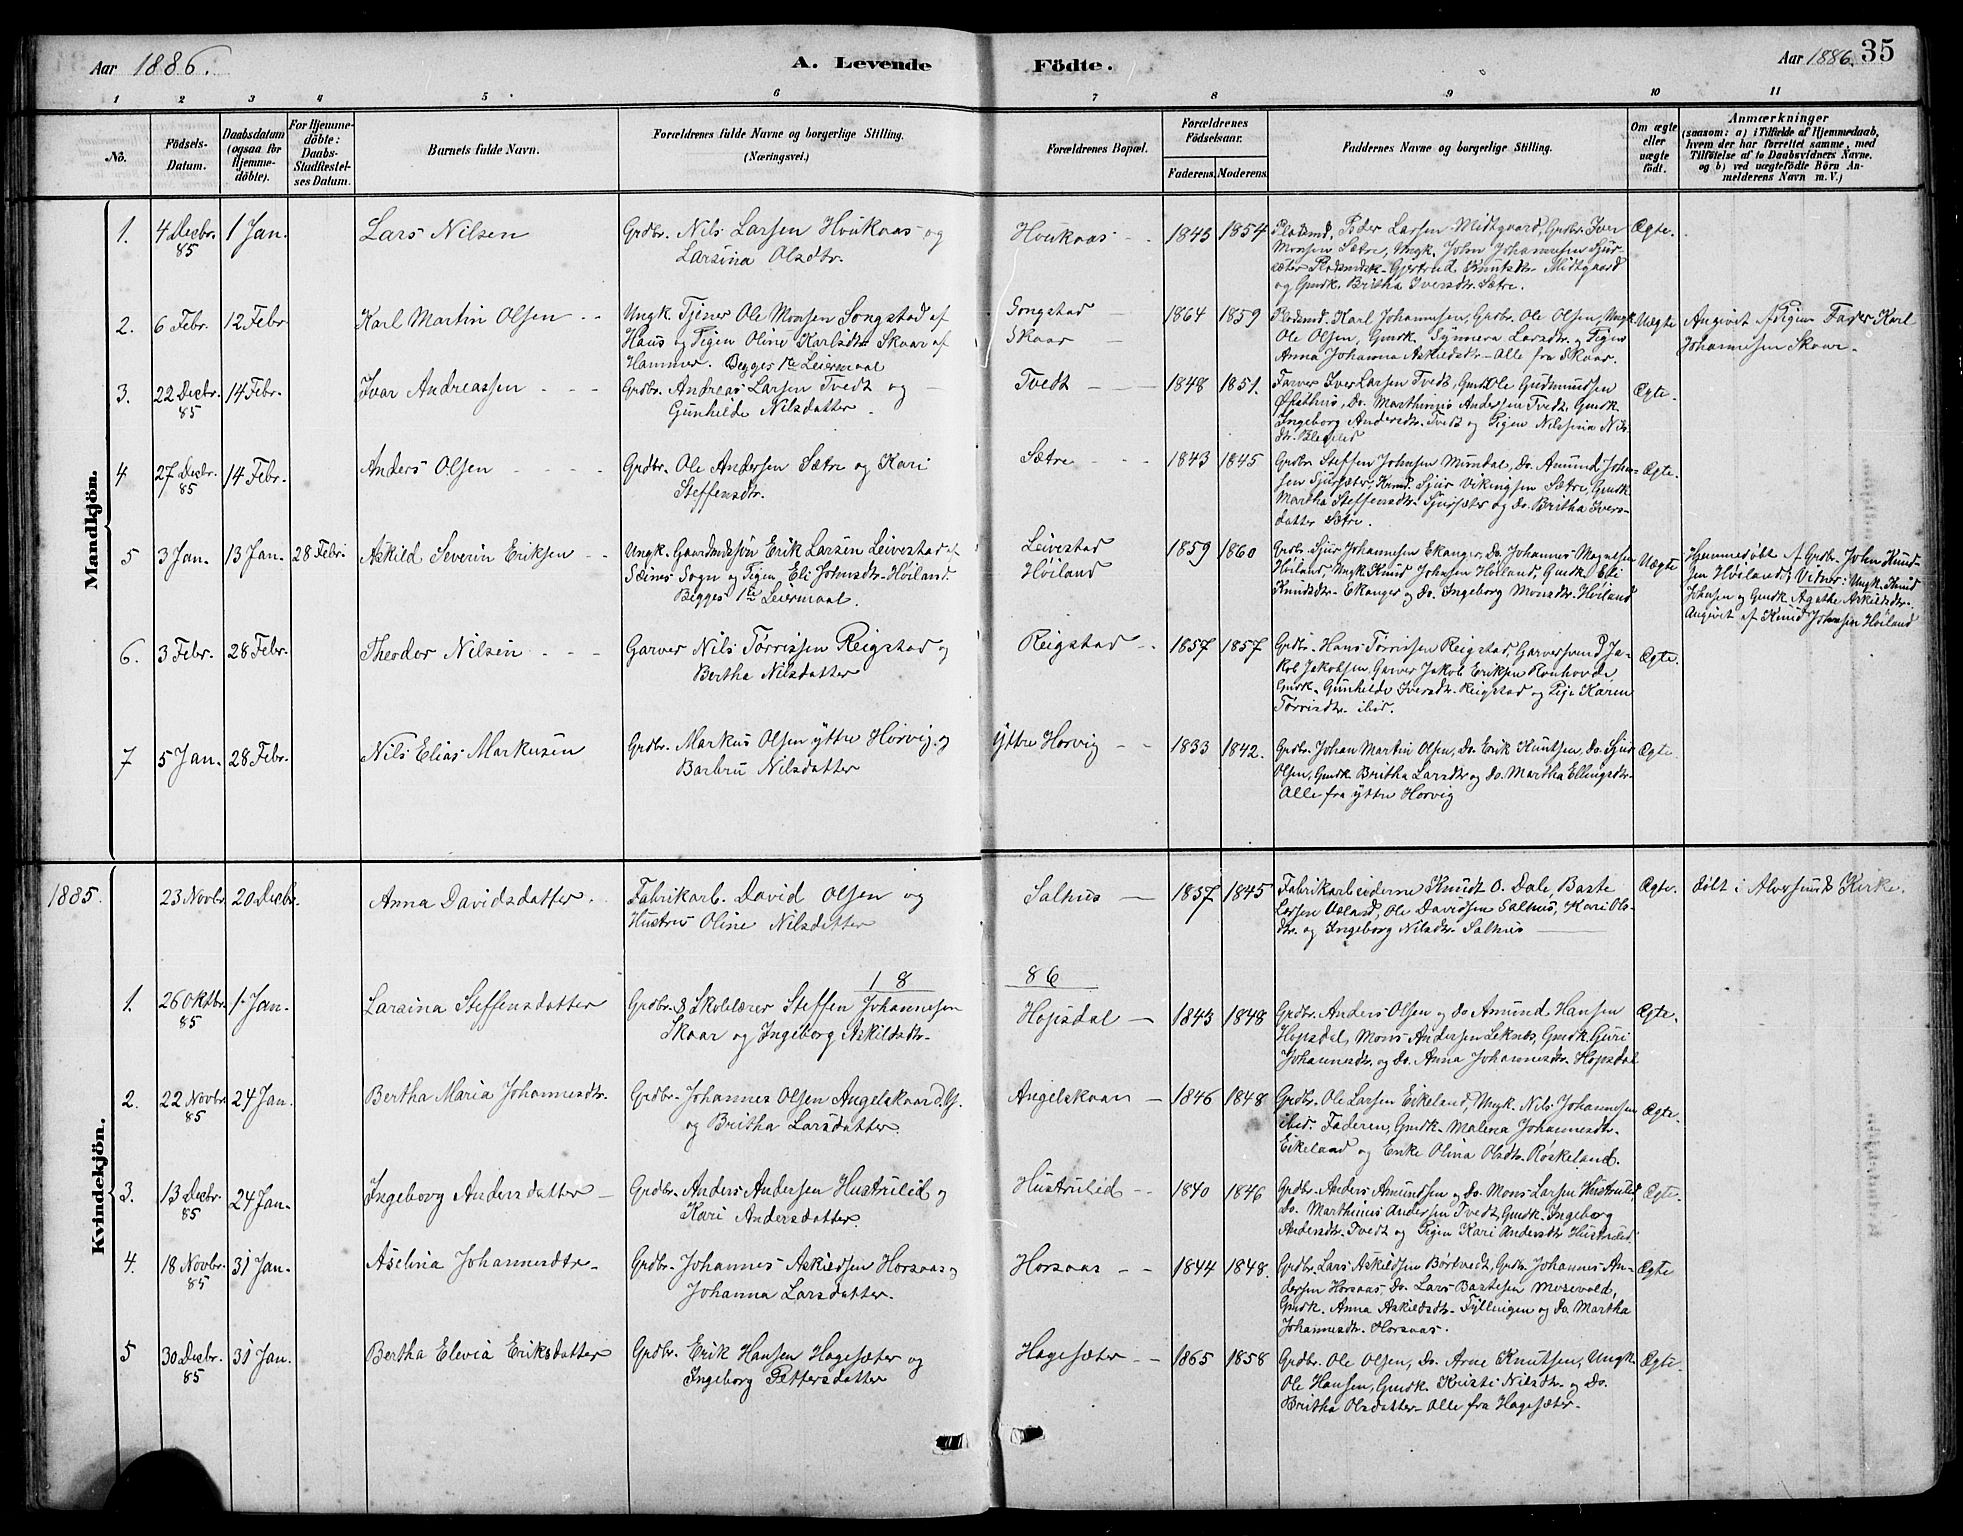 Aar 1886. A. Levende Födte. Aar 1886. 35
1 2 3 4 5 6 7 8 9 10 11
No.
Födsels-Datum.
Daabsdatum (ogsaa for Hjemme-döbte).
For Hjemme-döbte: Daabs-Stadfæstel-ses Datum.
Barnets fulde Navn.
Forældrenes fulde Navne og borgerlige Stilling. (Næringsvei.)
Forældrenes Bopæl.
Forældrenes Födselsaar.
Faderens. Moderens.
Faddernes Navne og borgerlige Stilling.
Om ægte eller uægte födt.
Anmærkninger
(saasom: a) i Tilfælde af Hjemmedaab, hvem der har forrettet samme, med Tilföielse af to Daabsvidners Navne, og b) ved uægtefödte Börn Anmelderens Navn m. V.)
Mandkjön.
1. 4 Decbr. 85 1 Jan. Lars Nilsen
Grdbr. Nils Larsen Houkaas og
Larsina Olsdtr.
Houkaas 1843 1854
Pladsmd. Peder Larsen Midtgaard, Grdbr. Iver
Monsen Sætre, Ungk. John Johannesen Sjur-
sæter Pladsmdsk. Gjertrud Knutsdtr. Midtgaard
og Gmdk. Britha Iversdtr. Sætre.
Ægte.
2. 6 Febr. 12 Febr Karl Martin Olsen
Ungk. Tjener Ole Monsen Songstad af
Haus og Pigen Oline Karlsdtr. Skaar af
Hammer. Begges 1te Leiermaal
Songstad
Skaar
1864 1859
Pladsmd. Karl Johannesen, Grdbr. Ole Olsen, Ungk.
Ole Olsen, Gmdk. Synneva Larsdtr. og Pigen
Anna Johanna Askildsdtr. Alle fra Skaar.
Uægte
Angivet af Pigens Fader Karl
Johannesen Skaar.
3. 22 Decbr. 85 14 Febr. Ivar Andreassen
Grdbr. Andreas Larsen Tvedt og
Gunhilde Nilsdatter.
Tvedt 1848 1851.
Farver Iver Larsen Tvedt, Gmd. Ole Gudmundsen
Do. Marthinus Andersen Tvedt, Gmdk.
Ingeborg Andersdtr. Tvedt og Pigen Nilsina Nils-
dtr.
Ægte.
4 27 Decbr. 85 14 Febr. Anders Olsen
Grdbr. Ole Andersen Sætre og Kari
Steffensdtr.
Sætre 1843 1845
Grdbr. Steffen Johnsen Mundal, Do. Amund John-
sen Sjursæter, Sjur Vikingsen Sætre, Gmdk
Martha Steffensdtr. Sjursæter og Do. Britha Ivers-
datter Sætre.
Ægte.
5 3 Jan. 13 Jan. 28 Febr. Askild Severin Eriksen
Ungk. Gaardmdssön Erik Larsen Leivestad af
Sæims Sogn og Pigen Eli Johnsdtr. Höiland.
Begges 1te Leiermaal.
Leivestad
Höiland
1859 1860
Grdbr. Sjur Johannesen Ekanger, Do. Johannes Magnesen
Höiland, Ungk. Knud Johnsen Höiland, Gmdk. Eli
Knudsdtr. Ekanger og Do. Ingeborg Monsdtr. Höiland
Uægte
Hjemmedöbt af Grdbr. John Knud-
sen Höiland; Vidner: Ungk. Knud
Johnsen og Gmdk. Agathe Askildsdtr.
Angivet af Knud Johnsen Höiland
6. 3 Febr. 28 Febr. Theodor Nilsen
Garver Nils Tørrissen Reigstad og
Bertha Nilsdatter
Reigstad 1857 1857
Grdbr. Hans Tørrissen Reigstad, Garversvend Ja-
kob Jakobsen, Garver Jakob Eriksen Ronhovde
Gmdk. Gunhilde Iversdtr. Reigstad og Pige Karen
Tørrisdtr. ibid.
Ægte.
7 5 Jan. 28 Febr. Nils Elias Markusen
Grdbr. Markus Olsen yttre Horvig og
Barbru Nilsdatter
Yttre Horvig 1833 1842.
Grdbr. Johan Martin Olsen, Do. Erik Knutsen, Do. Sjur
Olsen, Gmdk. Britha Larsdtr. og Do. Martha Ellingsdtr.
Alle fra yttre Horvig
Ægte
Kvindekjön.
1885. 23 Novbr. 20 Decbr. Anna Davidsdatter.
Fabrikarb. David Olsen og
Hustru Oline Nilsdatter
Salhus 1837 1845
Fabrikarbeiderne Knudt O. Dale Baste
Larsen Ole Davidsen Salhus, Kari Ols-
dtr. og Ingeborg Nilsdtr. Salhus
Ægte.
döbt i Alversunds Kirke.
18 86
1. 26 Oktbr. 85 1. Jan. Larsina Steffensdatter
Grdbr. & Skolelærer Steffen Johannesen
Skaar og Ingeborg Askildsdtr.
Hopsdal 1843 1848
Grdbr. Anders Olsen og Do Amund Hansen
Hopsdal, Mons Andersen Leknes, Gmdk. Guri
Johannesdtr. og Do. Anna Johannesdtr. Hopsdal
Ægte.
2. 22 Novbr. 85 24 Jan. Bertha Maria Johannesdtr.
Grdbr. Johannes Olsen Angelskaar
og Britha Larsdatter
Angelskaar 1846 1848
Grdbr. Ole Larsen Eikeland, Ungk. Nils Johannesen
ibid. Faderen, Gmdk. Malena Johannesdtr.
Eikeland og Enke Olina Olsdtr. Röskeland.
Ægte.
3. 13 Decbr. 85 24 Jan. Ingeborg Andersdatter
Grdbr. Anders Andersen Hustrulid og
Kari Andersdatter.
Hustrulid 1840 1846
Grdbr. Anders Amundsen og Do. Mons Larsen Hustrulid
Do. Marthinus Andersen Tvedt, Gmdk. Ingeborg
Andersdtr. Tvedt og Pigen Kari Andersdtr Hustrulid.
Ægte.
4. 18 Novbr. 85 31 Jan. Aselina Johannesdtr.
Grdbr. Johannes Askildsen Horsaas og
Johanna Larsdatter.
Horsaas 1844 1848.
Grdbr. Lars Askildsen Børtvedt, Grdbr Johannes An-
dersen Horsaas, Do. Lars Bastesen Mosevold,
Gmdk. Anna Askildsdtr. Fyllingen og Do. Martha
Johannesdtr. Horsaas.
Ægte
5 30 Decbr. 85 31 Jan. Bertha Elevia Eriksdatter
Grdbr. Erik Hansen Hagesæter og
Ingeborg Pettersdatter
Hagesæter 1865 1858
Grdbr. Ole Olsen, Do. Arne Knutsen, Ungk.
Ole Hansen, Gmdk. Kristi Nilsdtr. og Do.
Britha Olsdatter. Alle fra Hagesæter.
Ægte